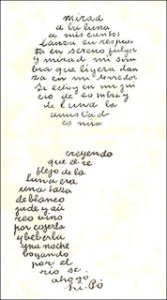 mirad
a la luna
a mis cantos
lanza en respues
ta en sereno fulgor
y mirad mi som
bra que ligera dan
za en mi derredor
Si estoy en mi jui
cio de sombra y
de luna la
amistad
es mia
creyendo
que el re
flejo de la
luna era
una taza
de blanco
jade y áu
reo vino
por cogerla
y beberla
una noche
bogando
por el
río se
ahogó
Li-Pó